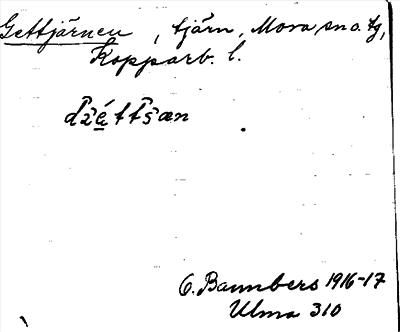 Gettjärnen, tjärn, Mora sn o. tg,
Kopparb. l.
džéttšæn
G. Bannbers 1916-17
Ulma 310